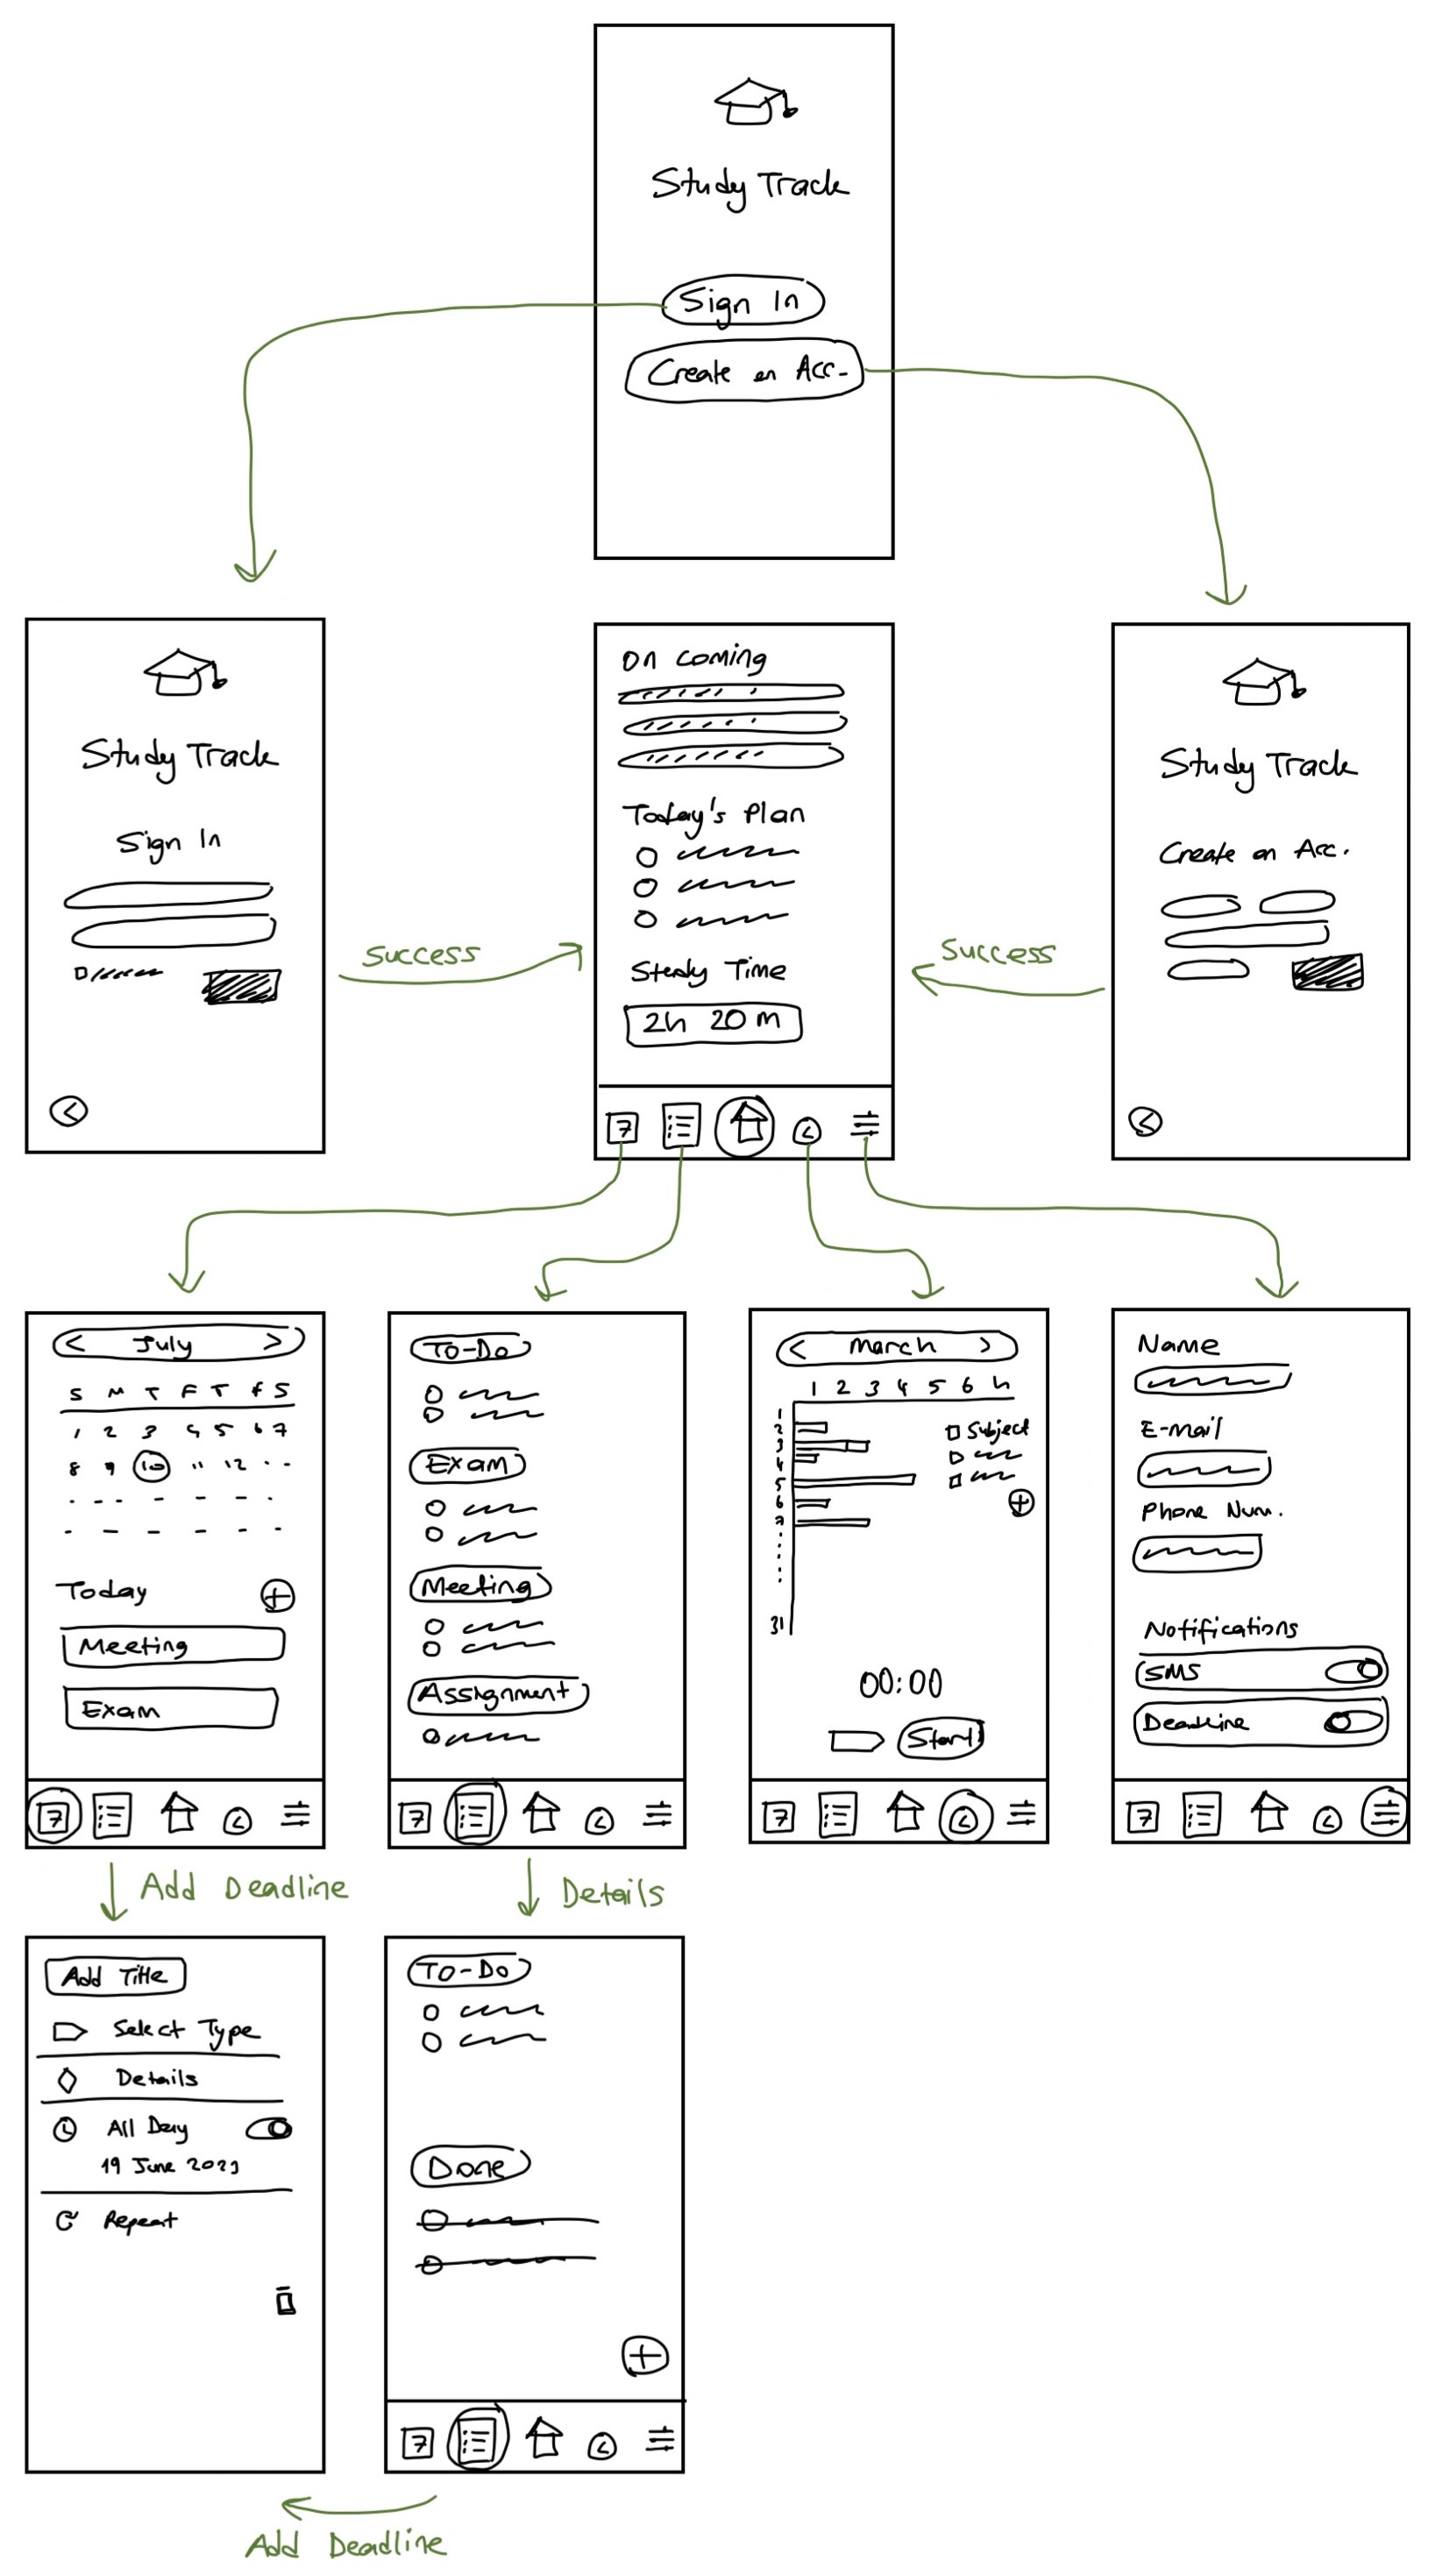 Study Track
Sign In
Create an Acc.
Study Track
Sign In
Success
On Coming
Today's Plan
Study Time
2h 20m
7
Success
Study Track
Create an Acc.
< July >
S M T F T F S
1 2 3 4 5 6 7
8 9 10 11 12
Today
Meeting
Exam
7
To-Do
Exam
Meeting
Assignment
7
< March >
1 2 3 4 5 6 h
1
2
3
4
5
6
7
31
Subject
00:00
Start
7
Name
E-Mail
Phone Num.
Notifications
SMS
Deadline
7
Add Deadline
Details
Add Title
Select Type
Details
All Day
19 June 2023
Repeat
To-Do
Done
7
Add Deadline